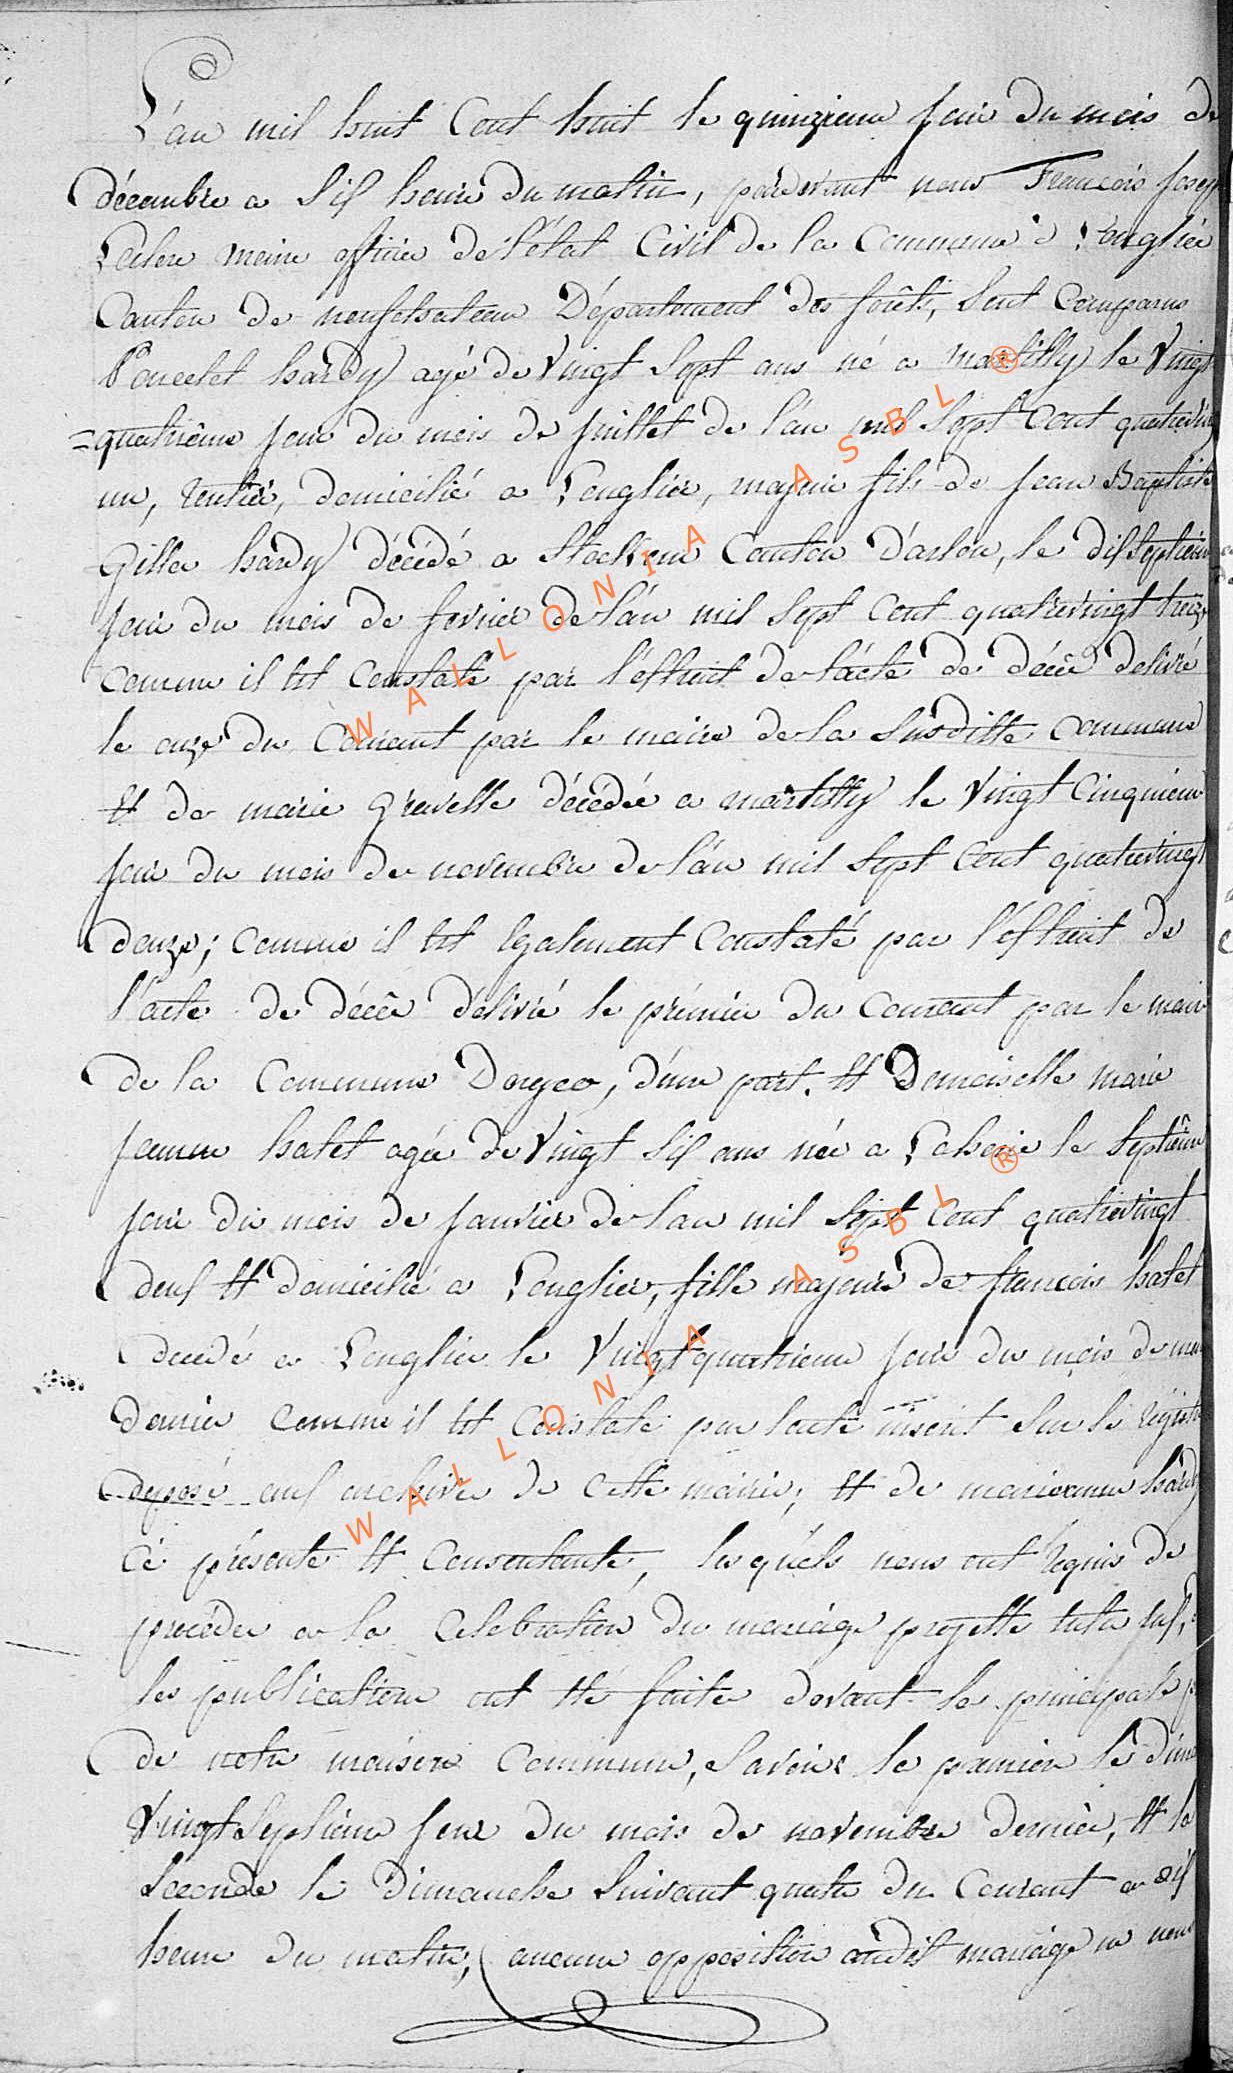 L'an mil huit Cent huit le quinzieme jour du mois de
décembre a six heure du matin, pardevant nous François Josep
maire officier de l'état Civil de la Commune d Longlier
Canton de neufchateau Département des forêts, sont Comparus
Poncelet hardy agé de Vingt Sept ans né a martilly le Vingt
=quatrième jour du mois de juillet de l'an mil Sept Cent quatrevingt
un, rentier, domicilié a Longlier, majeur fils de jean Baptiste
Gilles hardy décédé a Stockem Canton D'arlon, le dixseptieme
jour du mois de fevrier de l'an mil Sept Cent quatrevingt treize
comme il est Constaté par l'extrait de lácte de décès delivré
le onze du Courant par le maire de la Susditte Commune
et de marie Gravelle décédée a martilly le Vingt Cinquiem
jour du mois de novembre de l'an mil Sept Cent quatrevingt
douze; comme il est Egalement Constaté par l'extrait de
l'acte de décès délivré le prémier du Courant par le maire
de la Commune Dorgeo, d'une part. et Demoiselle marie
jeanne hatet agée de Vingt Six ans née a Laherie le Septième
jour du mois de janvier de l'an mil Sept Cent quatrevingt
deux et domicilié a Longlier, fille majeure de francois hatet
decedé a Longlier le Vingtquatrieme jour du mois de
dernier comme il est Constaté par lacte inscrit Sur le régistre
deposé aux archives de cette mairie; et de marieanne hardy
cé présente et Consentante, les qúels nous ont requis de
procéder a la Celebration du mariage projetté entre jux,
les publications ont été faites devant la principale p
de notre maison Commune, Savoir la premier le dima
Vingtseptième jour du mois de novembre dernier, et la
Seconde le Dimanche Suivant quatre du Courant a dix
heure du matin; aucune opposition audit mariage ne nous
WALLONIA ASBL ®
WALLONIA ASBL ®